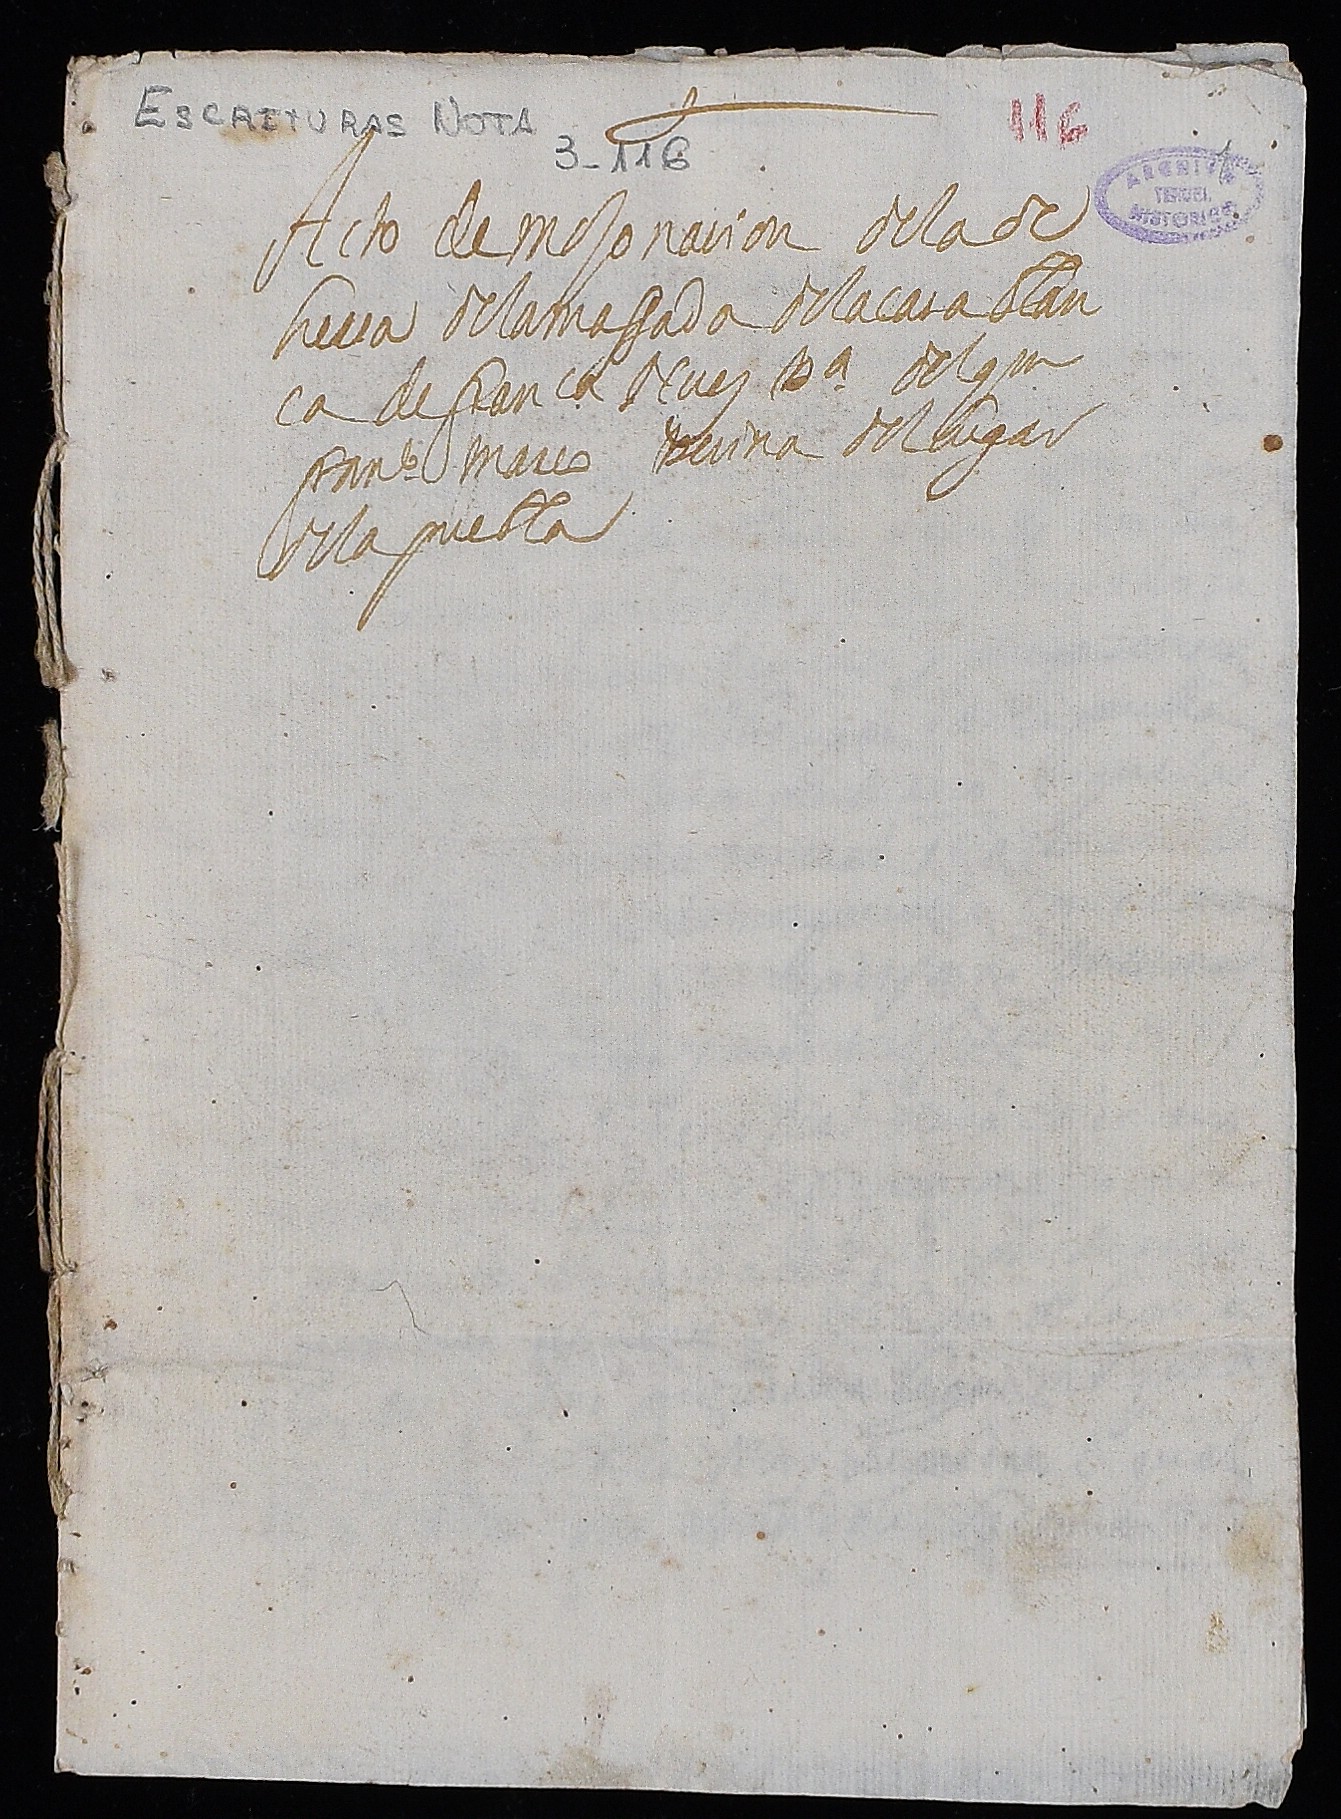 ESCRITURAS NOTA
3-116
116
1
ARCHIVO
TERUEL
HISTORICO
Acto de mojonacion dela de
hessa dela massada dela casa blan
ca de fran.ca
fran.co Marco vecina del lugar
dela puebla